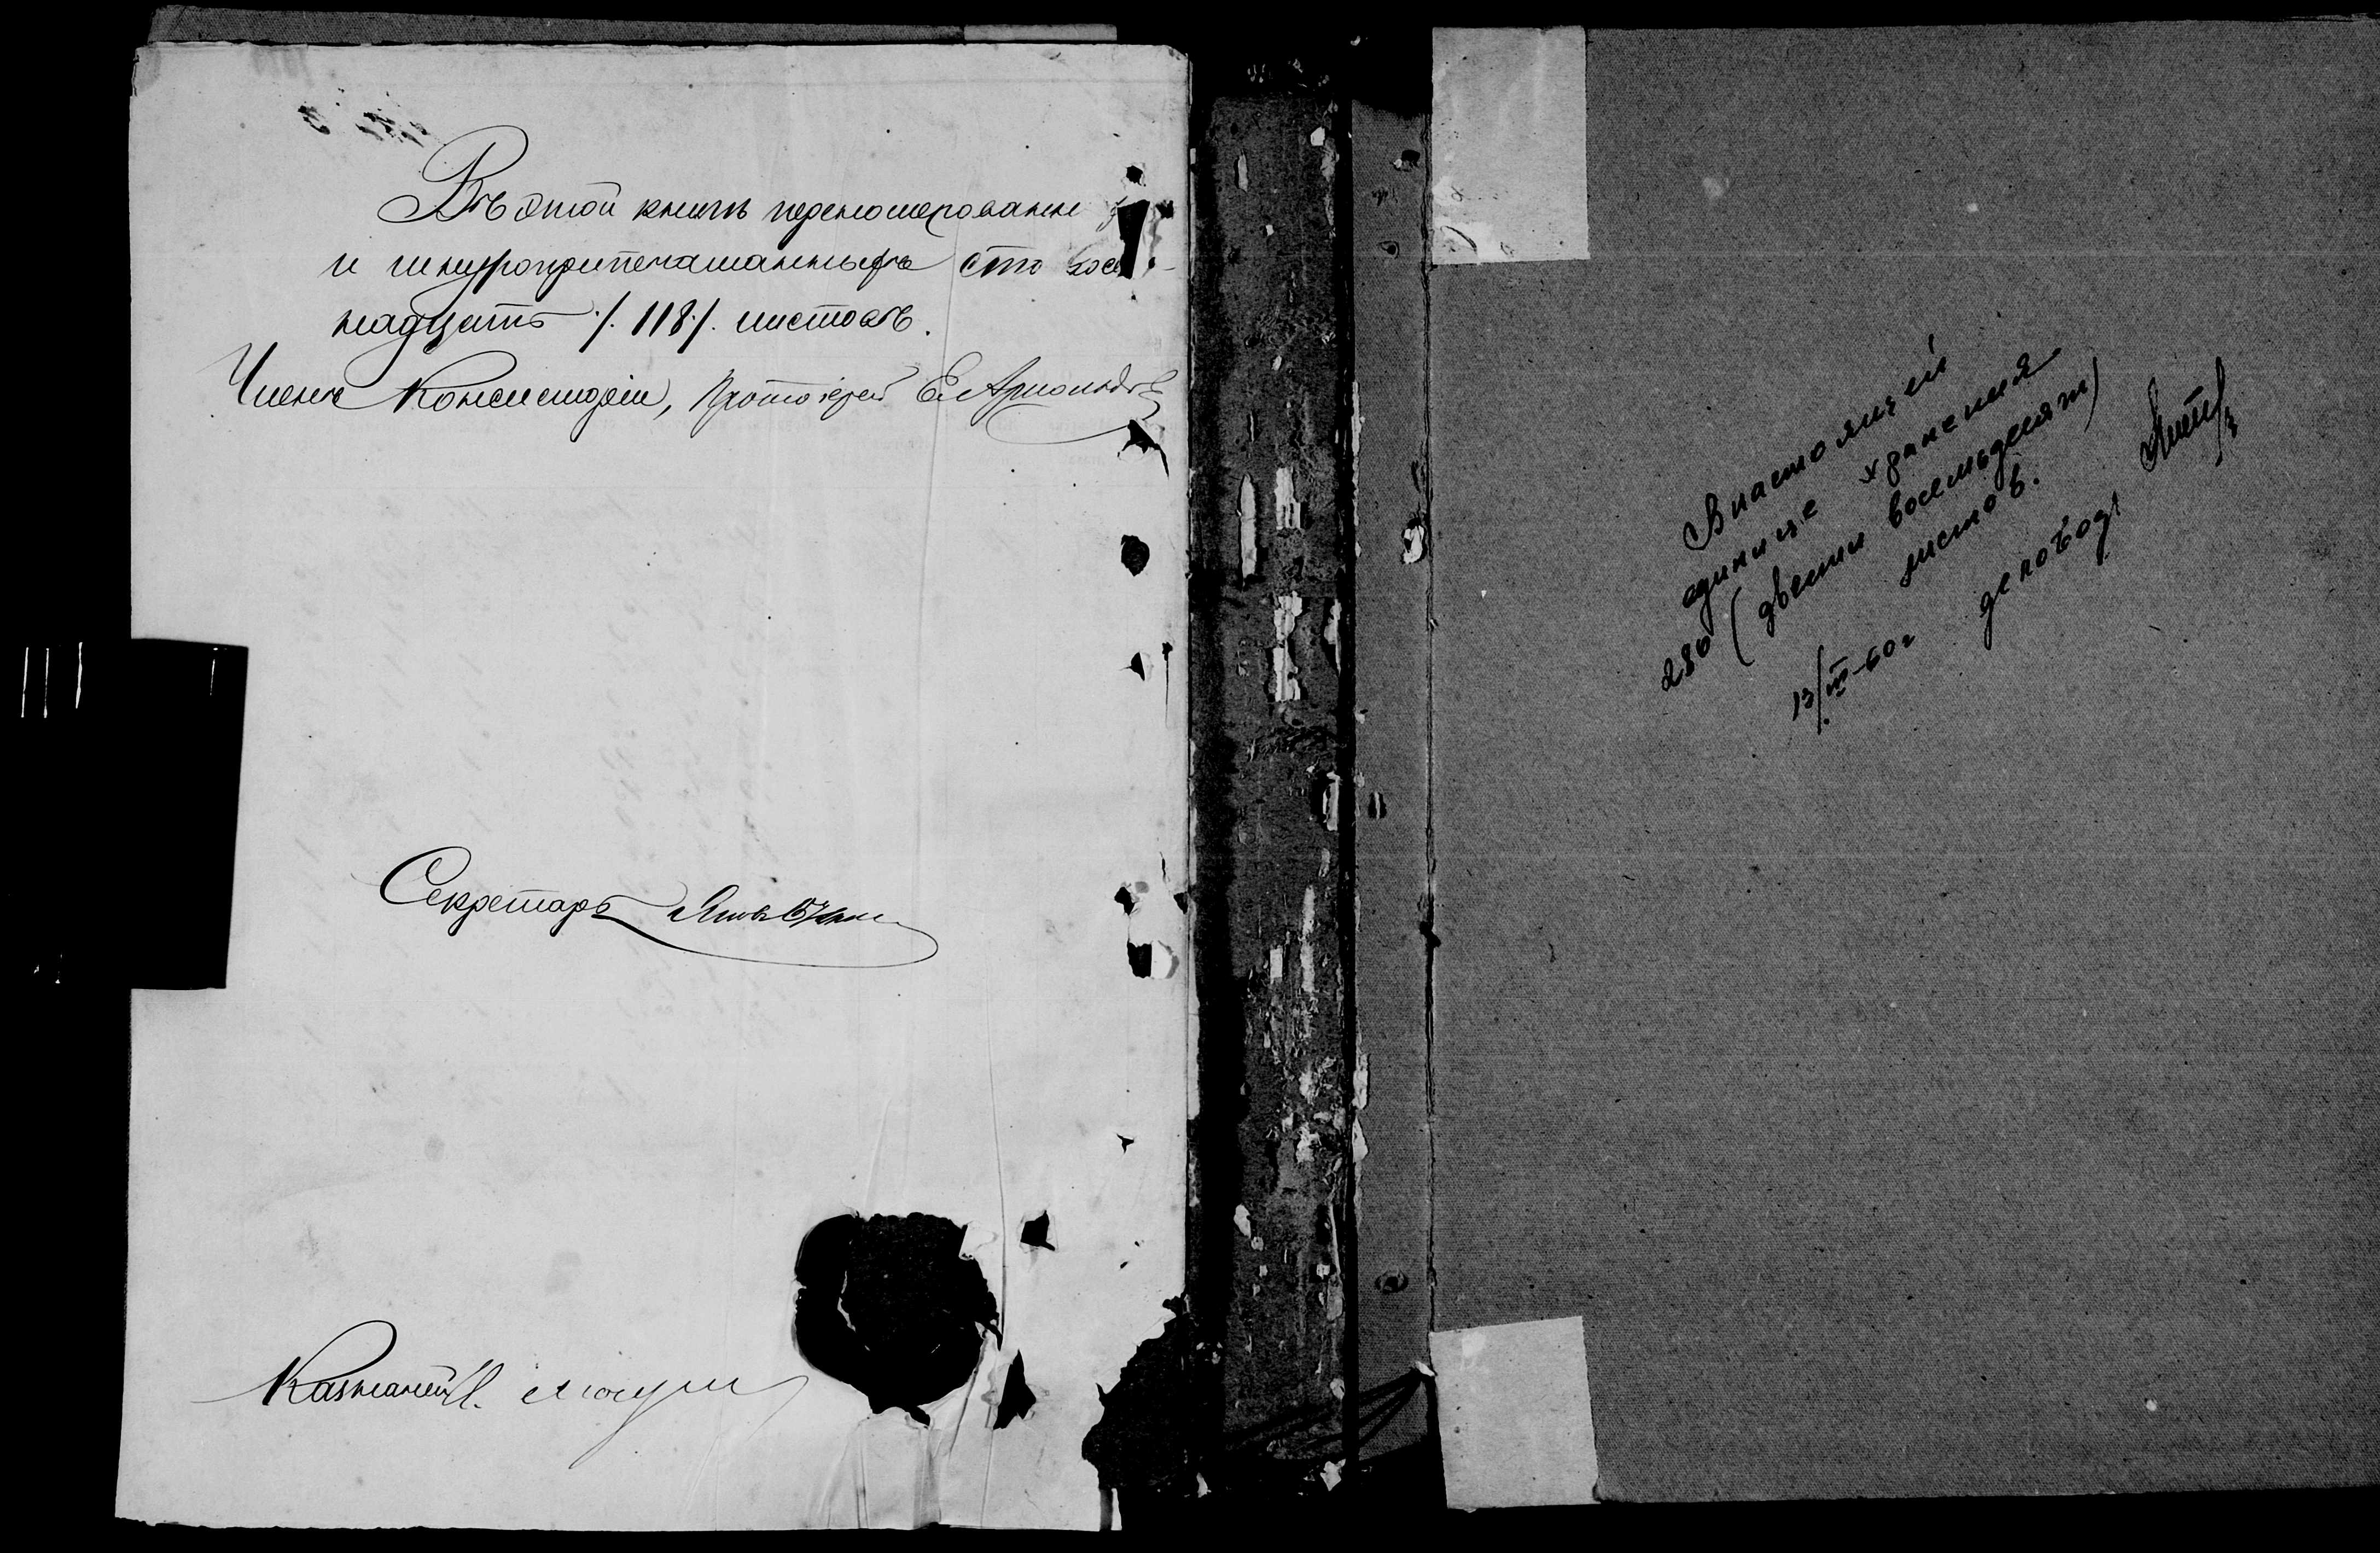 Въ этой книгѣ перенумерованн
и шнуроприпечатанныхъ сто восем-
надцать /.118/. листовъ.
Членъ Консисторіи, Протоіерей Е.
Секретарь
Казначей
В настоящей
единице хранения
280 (двести восемьдесят)
листов.
13/III-60г деловод